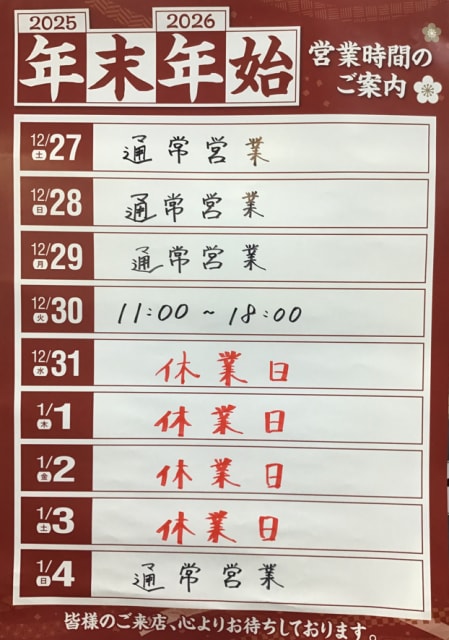 2025 2026
年末年始
営業時間の
ご案内
12/27 土 通常営業
12/28 日 通常営業
12/29 月 通常営業
12/30 火 11:00~18:00
12/31 水 休業日
1/1 木 休業日
1/2 金 休業日
1/3 土 休業日
1/4 日 通常営業
皆様のご来店、心よりお待ちしております。